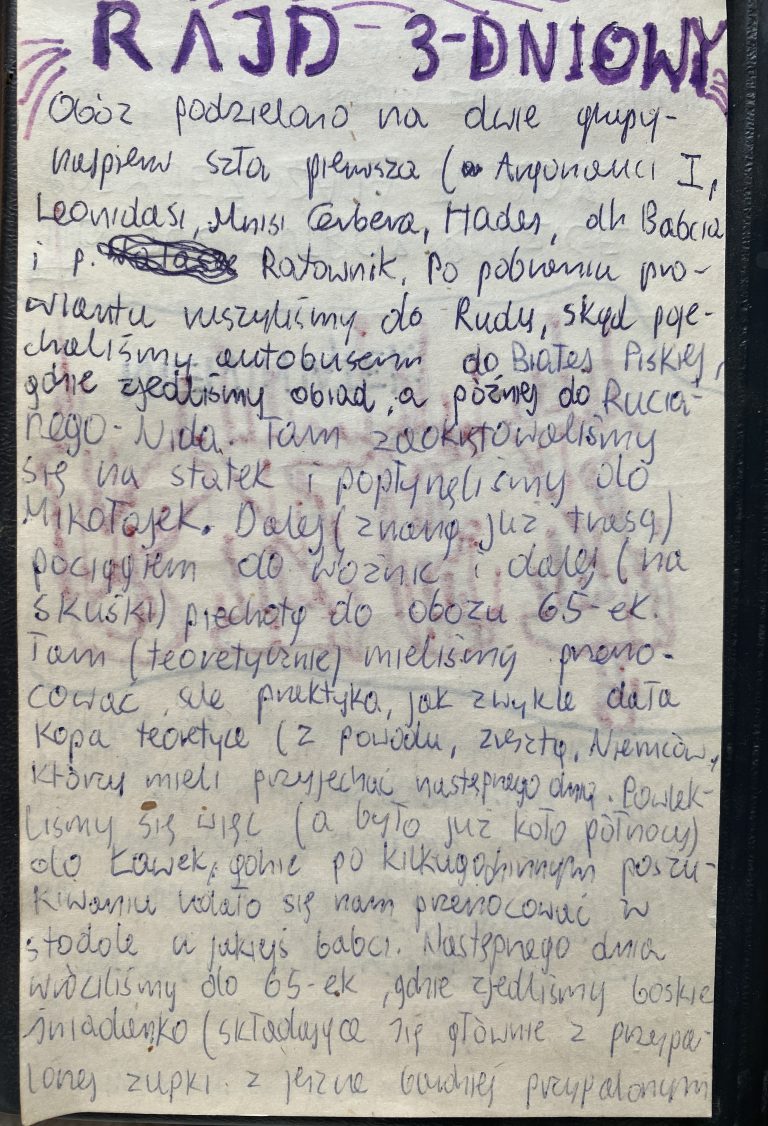 RAJD 3-DNIOWY
Obóz podzielono na dwie grupy-
najpierw szła pierwsza (Argonauci I,
Leonidasi, Mnisi Cerbera, Hades, dh Babcia
i p. Ratownik. Po pobraniu pro-
wiantu ruszyliśmy do Rudy, skąd poje-
chaliśmy autobusem do Białej Piskiej,
gdzie zjedliśmy obiad, a później do Rucia-
nego-Nida. Tam zaokrętowaliśmy
się na statek i popłynęliśmy do
Mikołajek. Dalej (znaną już trasą)
pociągiem do Woźnic i dalej (na
skuśki) piechotą do obozu 65-ek.
Tam (teoretycznie) mieliśmy przeno-
cować ale praktyka, jak zwykle dała
kopa teoretyce (z powodu, zresztą, Niemców,
którzy mieli przyjechać następnego dnia. Powlek-
liśmy się więc (a było już koło północy)
do Ławek, gdzie po kilkugodzinnym poszu-
kiwaniu udało się nam przenocować w
stodole u jakiejś babci. Następnego dnia
wróciliśmy do 65-ek, gdzie zjedliśmy boskie
śniadanko (składające się głównie z przypa-
lonej zupki z jeszcze bardziej przypalonym